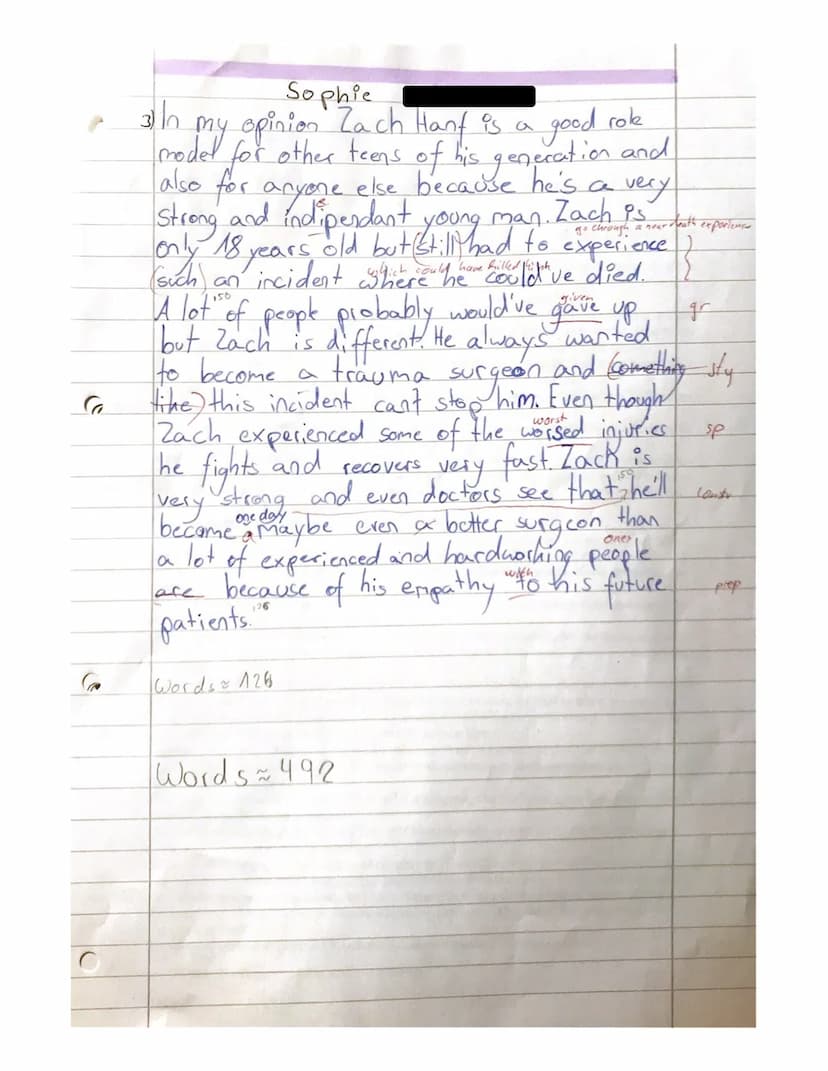 Sophie
3) In my opinion Zach Hanf is a good role
model for other teens of his generation and
also for anyone else because he's a very
e
strong and indipendant young man. Zach is
go through a near death experience
only 18 years old but (still) had to experience
which could have killed him
(such) an incident where he could've died.
50 given
A lot of people probably would've gave up gr
but Zach is different. He always wanted
to become a trauma surgeon and (something sty
like) this incident can't stop him. Even though
worst
Zach experienced some of the worsed injuries sp
he fights and recovers very fast. Zach is
very strong and even doctors see that he'll
one day
become a maybe even a better surgeon than
ones
a lot of experienced and hardworking people
with
are because of his empathy to his future prep
126
patients.
Words ≈ 126
Words ≈ 492